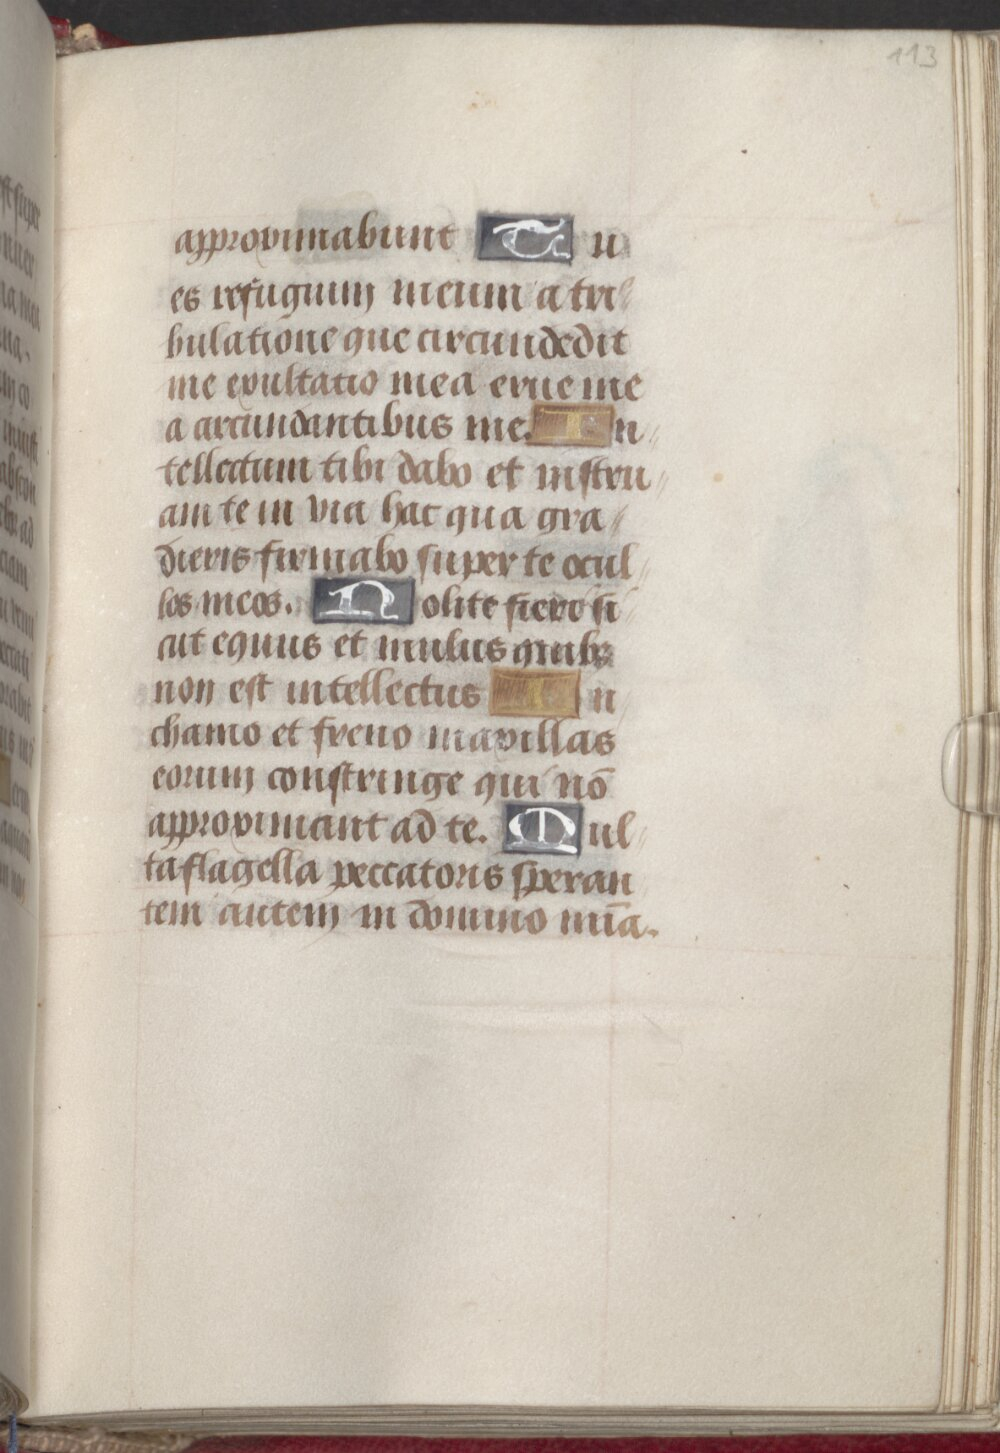 113
approximabunt Tu
es refugium meum a tri
bulatione que circundedit
me exultatio mea erue me
a circundantibus me. In
tellectum tibi dabo et instru
am te in via hac qua gra
dieris firmabo super te ocul
los meos. Nolite fieri si
cut equus et mulus quibꝫ
non est intellectus In
chamo et freno maxillas
eorum constringe qui nō
approximant ad te. Mul
ta flagella peccatoris speran
tem autem in domino mīa.